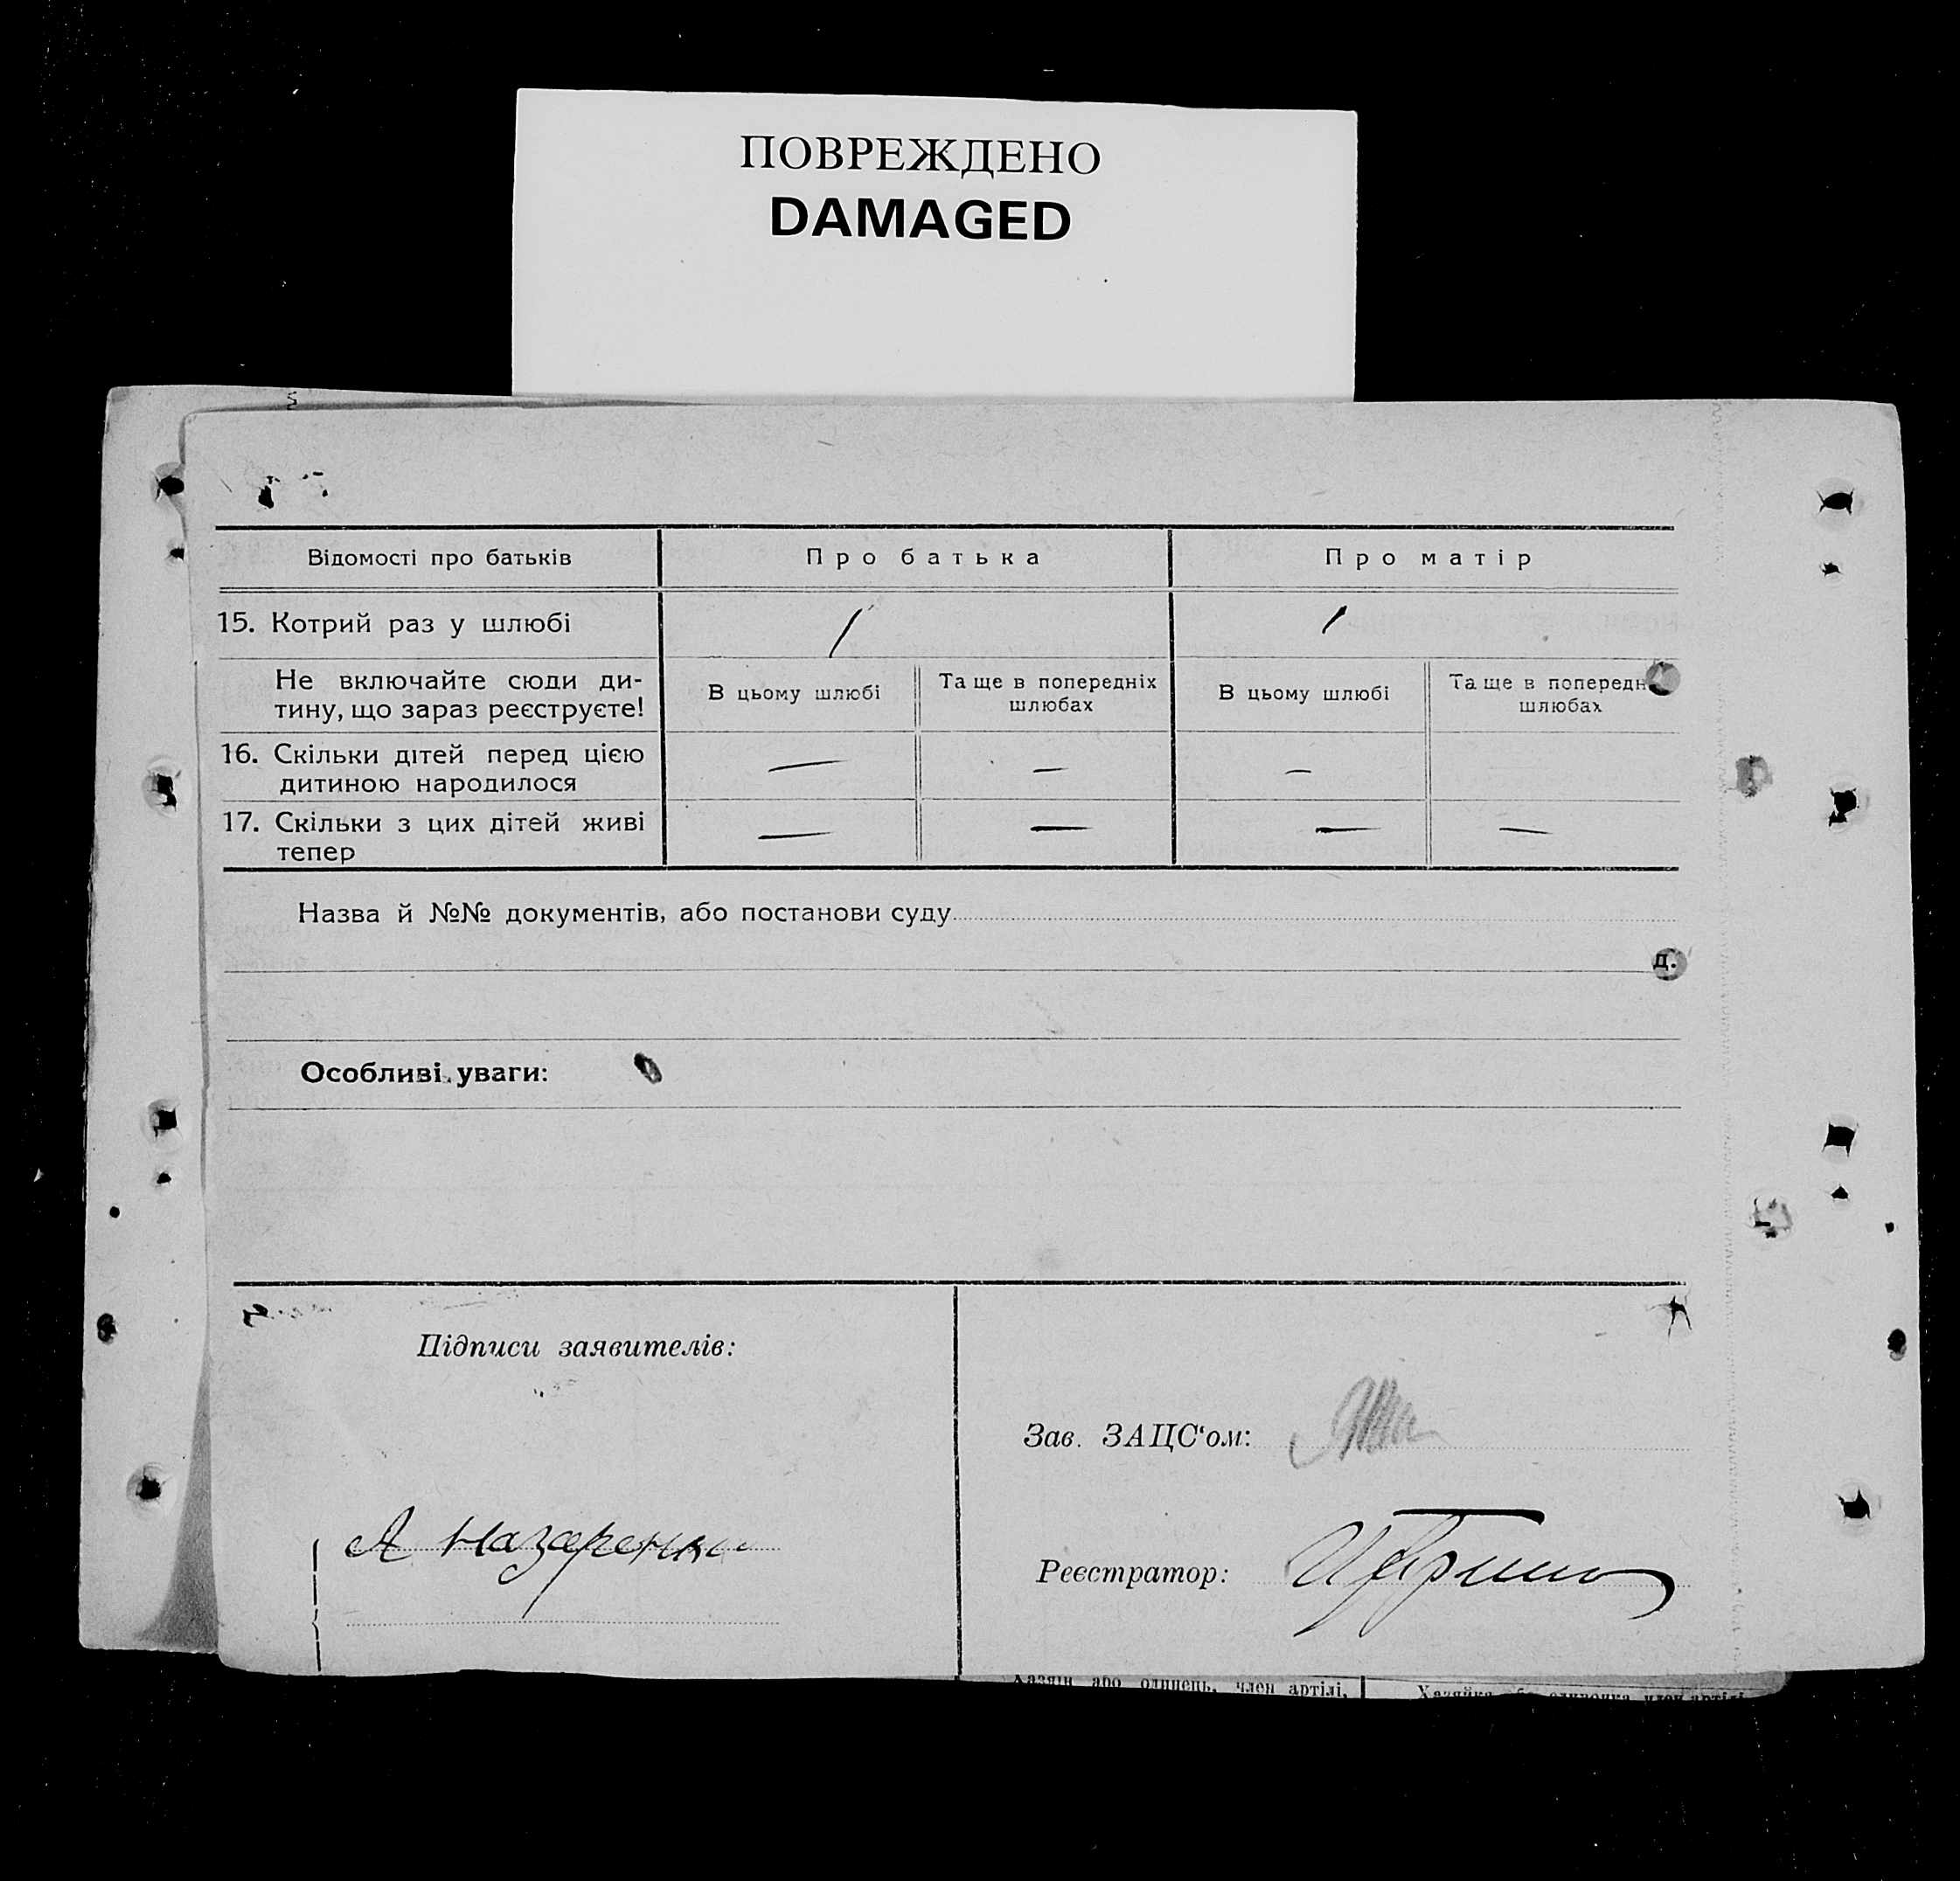 ПОВРЕЖДЕНО
DAMAGED
Відомості про батьків
Про батька
Про матір
15. Котрий раз у шлюбі
/
/
Не включайте сюди ди-
тину, що зараз реєструєте!
В цьому шлюбі
Та ще в попередніх
шлюбах
В цьому шлюбі
Та ще в попередн
шлюбах
16. Скільки дітей перед цією
дитиною народилося
—
—
—
17. Скільки з цих дітей живі
тепер
—
—
—
—
Назва й №№ документів, або постанови суду
д.
Особливі уваги:
Підписи заявителів:
Зав. ЗАЦС‘ом:
А Назаренко
Реєстратор:
Хазяїн або одинець, член артілі,
Хазяйка або одиночка член артілі